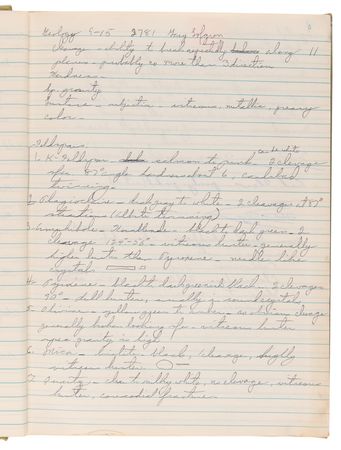 Geology 5-15 2781 Guy
Cleavage - ability to break repeatedly along 11
planes - probably no more than 3 direction
Hardness -
Sp. gravity
Lusture - subjective - vitreous, metallic, greasy
color -
Feldspars -
can be white
1. K-Feldspar - salmon to pink - 2 cleavage
Hardness about 6, carlsbad
twinning -
2. Plagioclase - dark gray to white - 2 cleavages at 87°
striations (albite twinning)
3. Amphibole - Hornblende - black to dark green - 2
cleavage 124°-56° - vitreous luster - generally
higher luster than Pyroxene - needle like
crystal
4. Pyroxene - black to dark green to black - 2 cleavages
90° - dull luster, usually
5. Olivine - yellow green to amber - no obvious cleavage
generally broken looking - vitreous luster
spec gravity is high
6. Mica - biotite, black, 1 cleavage, highly
vitreous luster
7. Quartz - clear to milky white, no cleavage, vitreous
luster, concoidal fracture -